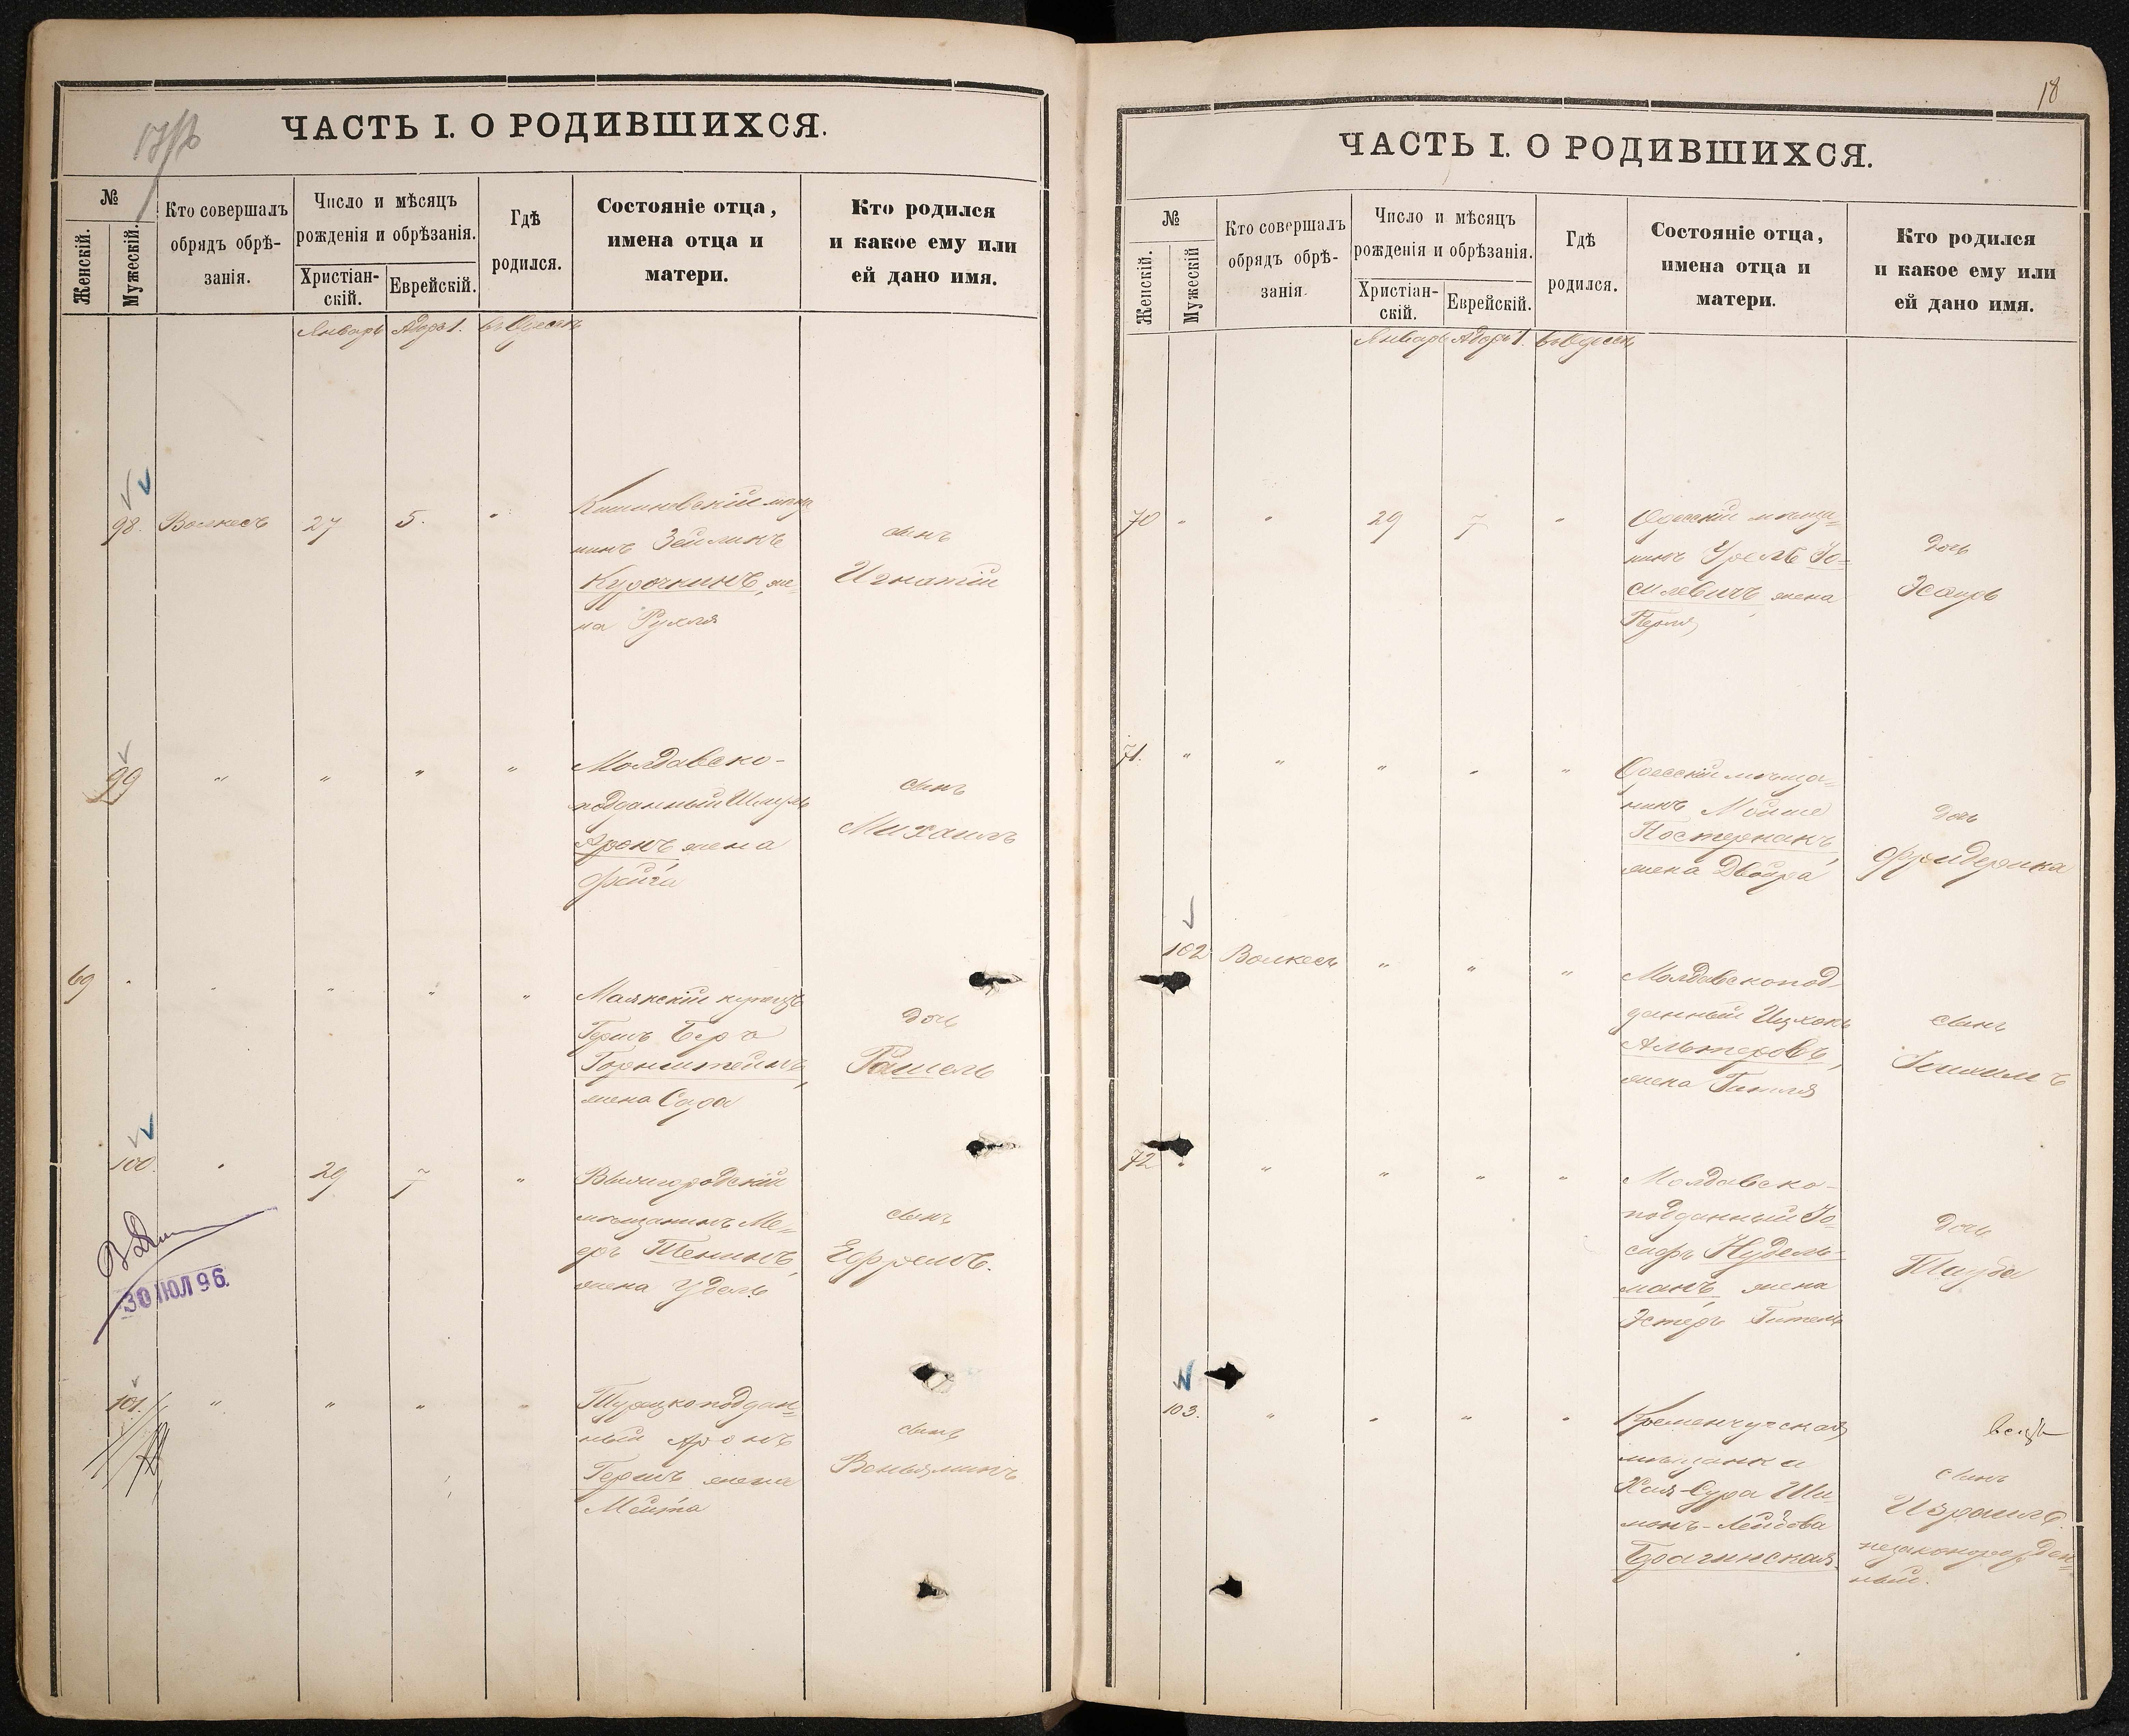 ЧАСТЬ I. О РОДИВШИХСЯ.
№
Женскій.
Мужескій.
Кто совершалъ
обрядъ обрѣ-
занія.
Число и мѣсяцъ
рожденія и обрѣзанія.
Христіан-
скій.
Еврейскій.
Гдѣ
родился.
Состояніе отца,
имена отца и
матери.
Кто родился
и какое ему или
ей дано имя.
Январь Адоръ 1. въ Одессѣ
98. Волкесъ 27 5. "
Кишиневскій мѣща
нинъ Зейликъ
Курочкинъ, же=
на Рухля
сынъ
Игнатій
99 " " " "
Молдавско-
подданный Шмуль
Аронъ жена
Фейга
сынъ
Михаилъ
69 " " " " "
Маякскій купецъ
Гершъ Беръ
Горнштейнъ,
жена Сара
дочь
Рашель
100. " 29 7 "
мѣщанинъ Ме=
еръ Тенинъ,
жена Удель
сынъ
Ефремъ.
30 ІЮЛ 96.
101. " " " "
Турецкоподдан=
ный Аронъ
Гершъ жена
Мейта
сынъ
Веньяминъ
18
ЧАСТЬ I. О РОДИВШИХСЯ.
№
Женскій.
Мужескій
Кто совершалъ
обрядъ обрѣ-
занія.
Число и мѣсяцъ
рожденія и обрѣзанія.
Христіан-
скій.
Еврейскій.
Гдѣ
родился.
Состояніе отца,
имена отца и
матери.
Кто родился
и какое ему или
ей дано имя.
Январь Адоръ 1. въ Одессѣ
70 " " 29 7 "
Одесскій мѣща=
нинъ Сроль Іо=
силевичъ, жена
Перля
дочь
Эсѳирь
71. " " " " "
Одесскій мѣща=
нинъ Мойше
Постернакъ,
жена Двойра
дочь
Фридерика
102 Волкесъ " " "
Молдавскопод
данный Ицхокъ
Альтеровъ,
жена Гитля
сынъ
72 " " " " "
Молдавско-
подданный Іо=
сифъ Нудель=
манъ, жена
Эстеръ Гитель
дочь
Тауба
103. " " " "
Кременчугская
мѣщанка
Хая-Сура Ши=
монъ-Лейбова
Брагинская.
сынъ
Израиль.
незаконорожден=
ный.